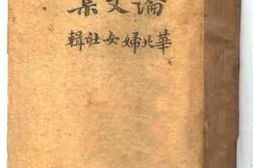 論文集
華北婦女社輯